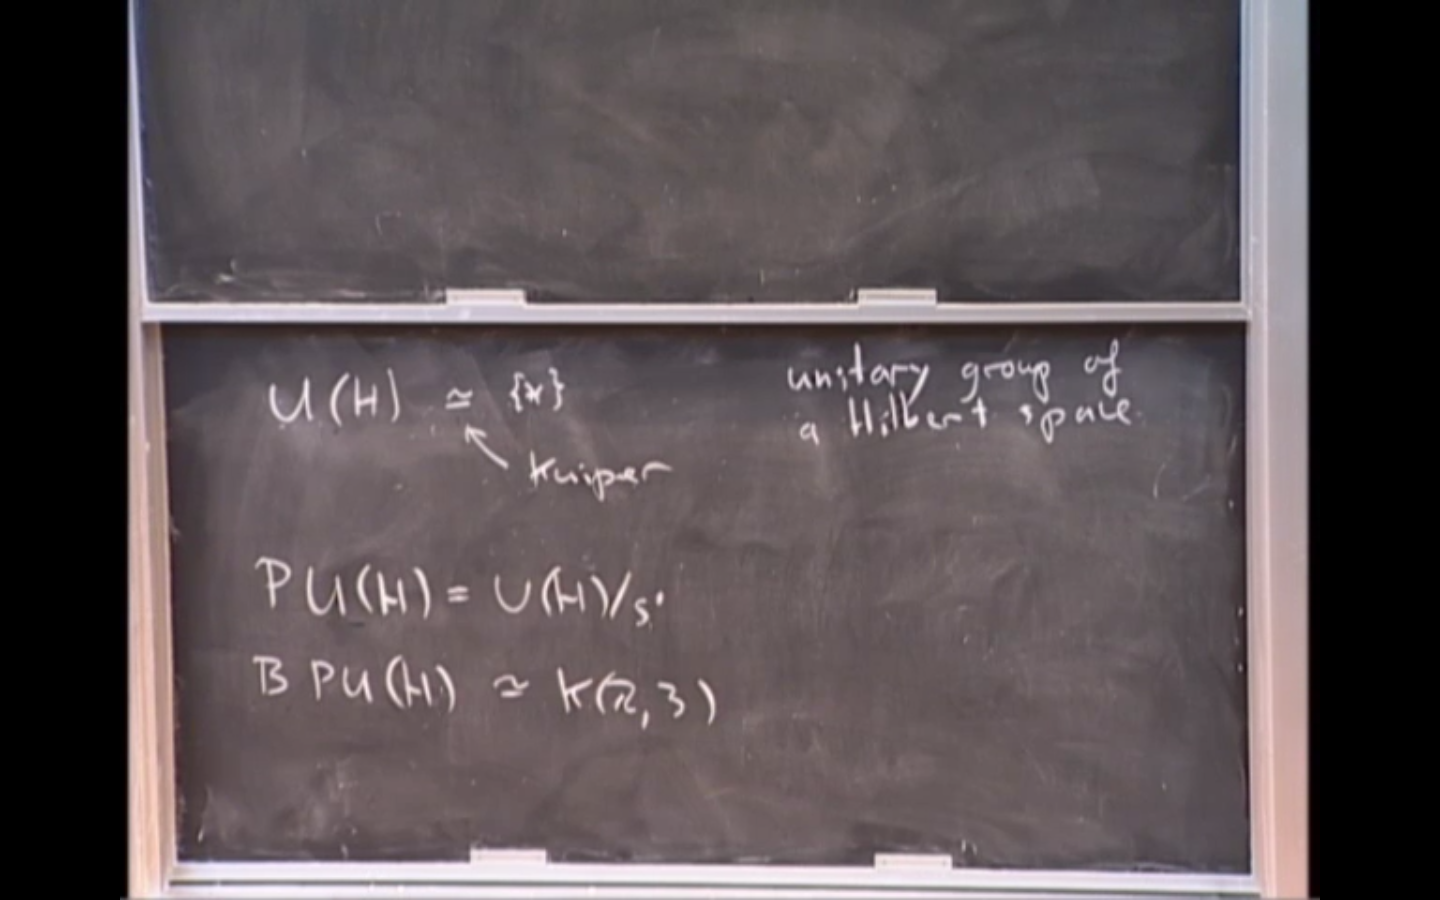 U(H) ≃ {*}
unitary group of
a Hilbert space
Kuiper
PU(H) = U(H)/S¹
B PU(H) ≃ K(ℤ,3)